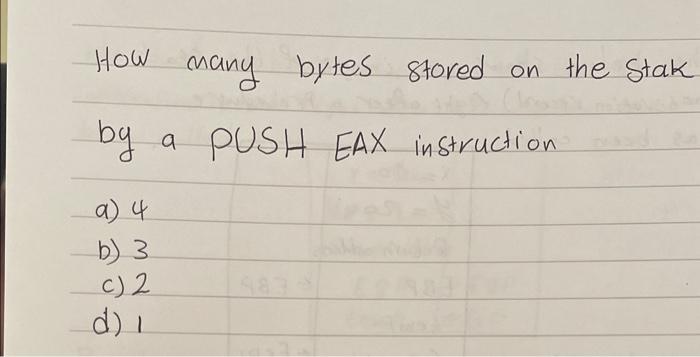 How many bytes stored on the Stak
by a PUSH EAX instruction
a) 4
b) 3
c) 2
d) 1